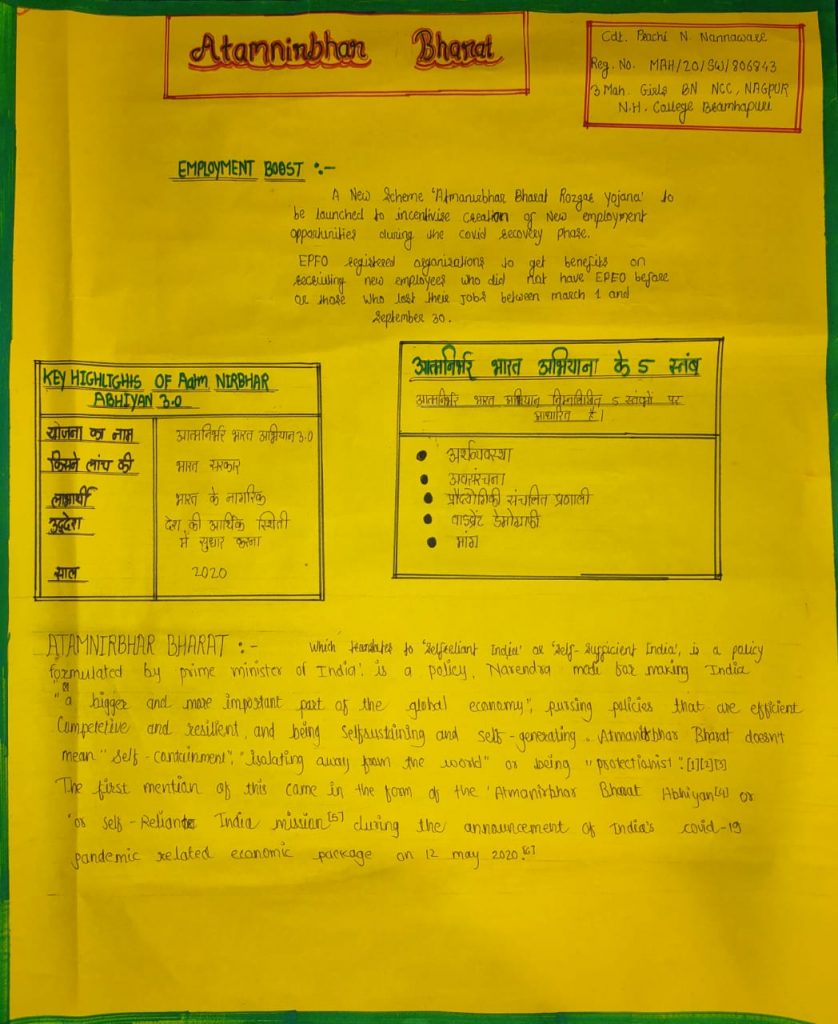 Atamnirbhar Bharat
Cdt. Prachi N. Nannaware
Reg. No. MAH/20/SW/806843
3 Mah. Girls BN NCC, NAGPUR
N.H. College Bramhapuri
EMPLOYMENT BOOST :-
A New Scheme 'Atmanirbhar Bharat Rozgar Yojana' to
be launched to incentivise creation of New employment
opportunities during the covid recovery phase.
EPFO registered organizations to get benefits on
recruiting new employees who did not have EPFO before
or those who lost their jobs between march 1 and
September 30.
KEY HIGHLIGHTS OF Aatm NIRBHAR
ABHIYAN 3.0
योजना का नाम आत्मनिर्भर भारत अभियान 3.0
किसने लांच की भारत सरकार
लाभार्थी भारत के नागरिक
उद्देश्य देश की आर्थिक स्थिती
में सुधार करना
साल 2020
आत्मनिर्भर भारत अभियाना के 5 स्तंब
आत्मनिर्भर भारत अभियान निम्नलिखित 5 स्तंबों पर
आधारित है।
● अर्थव्यवस्था
● अवसंरचना
● प्रौद्योगिकी संचलित प्रणाली
● वाइब्रेंट डेमोग्राफी
● मांग
ATAMNIRBHAR BHARAT :- Which translates to 'selfreliant India' or 'self-sufficient India', is a policy
formulated by prime minister of India', is a policy, Narendra modi for making India
"a bigger and more important part of the global economy", pursing policies that are efficient
Competetive and resilient, and being Selfsustaining and self-generating. Atmanirbhar Bharat doesn't
mean "self-containment", "isolating away from the world" or being "protectionist".[1][2][3]
The first mention of this came in the form of the 'Atmanirbhar Bharat Abhiyan[4] or
'or self-Reliante India mission[5] during the announcement of India's covid-19
pandemic related economic package on 12 may 2020.[6]